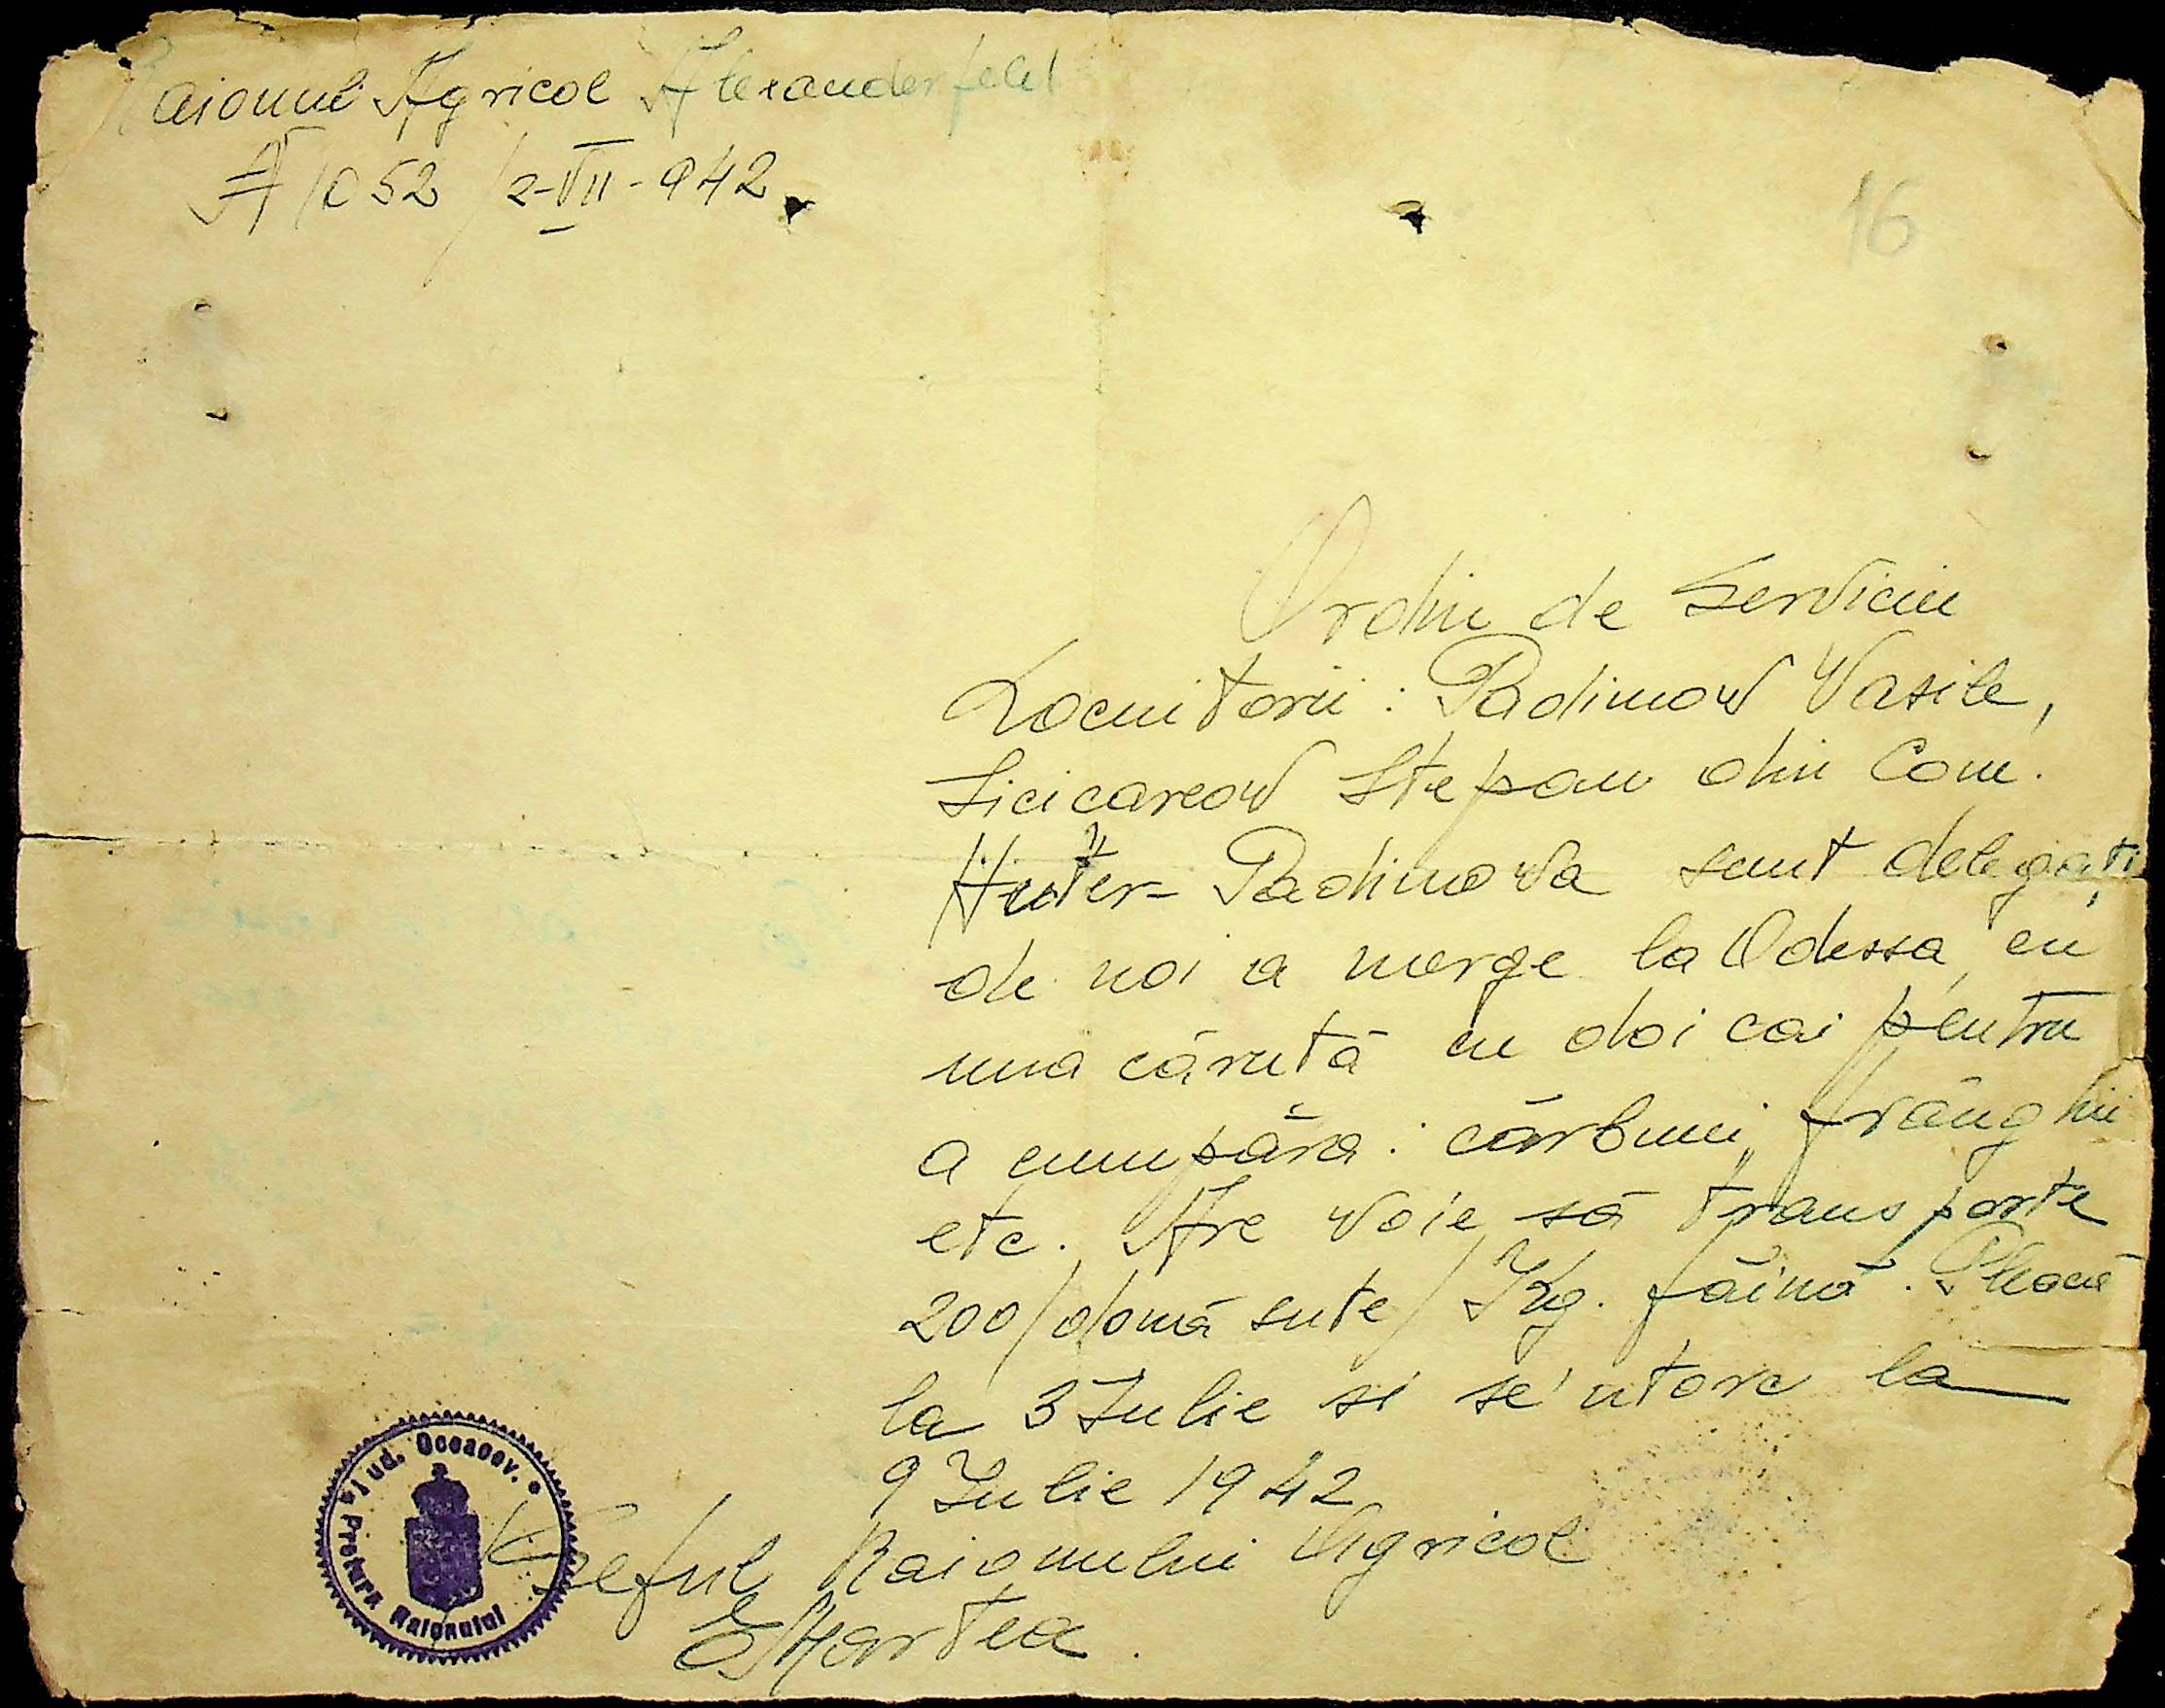 Raionul Agricol Alexanderfeld
№ 1052 / 2-VII-942.
16
Ordin de Serviciu
Locuitorii : Padimow Vasile,
Sicicareow Stepan din Com.
Huter- Padimova sunt delegați
de noi a merge la Odessa cu
una căruță cu doi cai pentru
a cumpăra : cărbuni, frânghii
etc. Are voie să transporte
200/două sute/ Kg. făină. Pleacă
la 3 Iulie si se 'ntorc la
9 Iulie 1942
Șeful Raionului Agricol
Jud. Oceacov.
Pretura Raionului